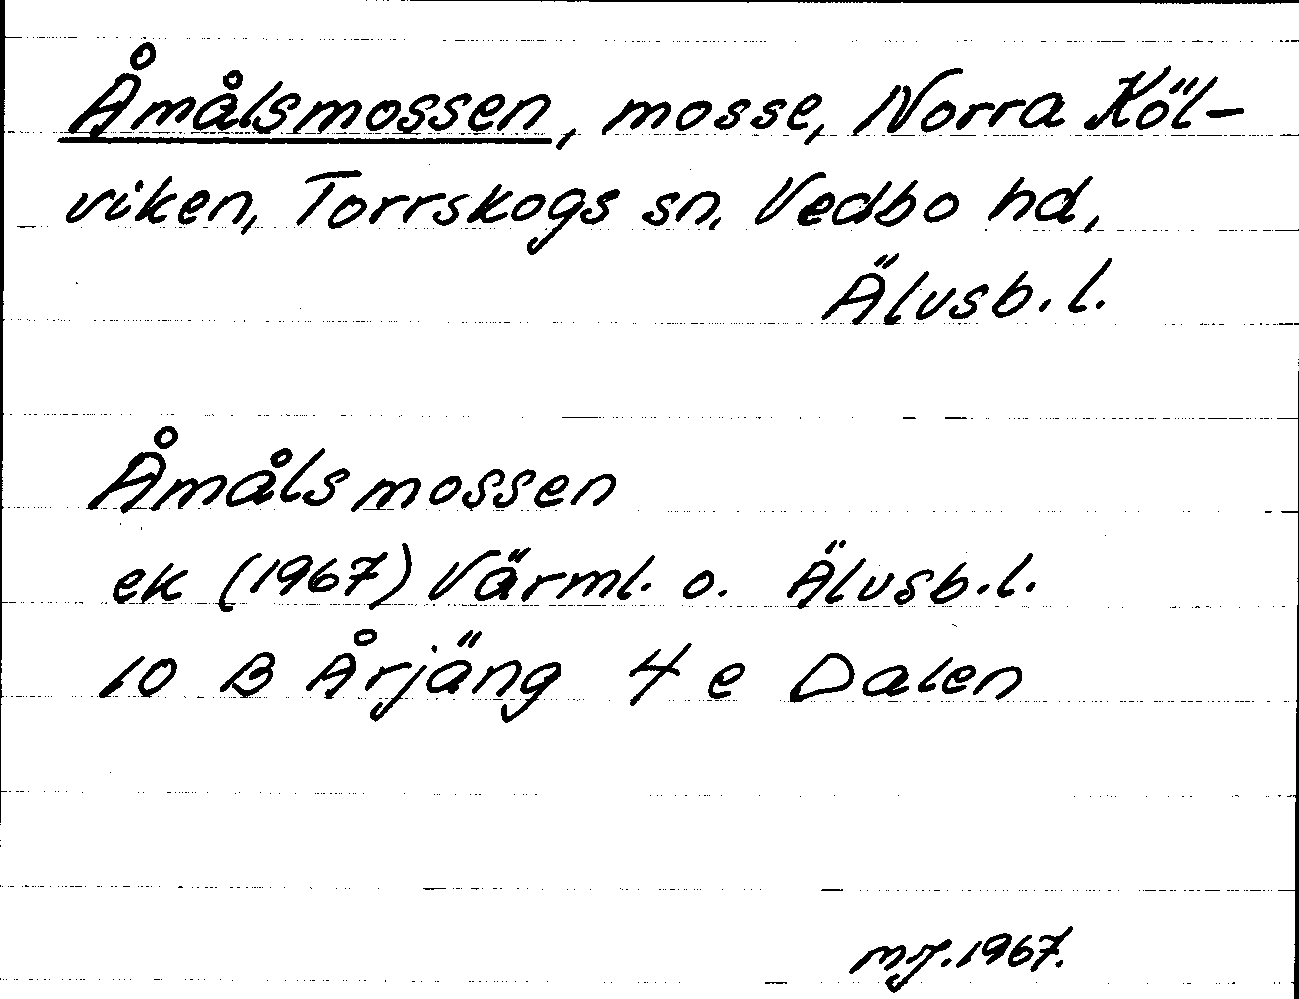 Åmålsmossen, mosse, Norra Köl-
viken, Torrskogs sn, Vedbo hd,
Älvsb. l.
Åmålsmossen
ek (1967) Värml. o. Älvsb. l.
10 B Årjäng 4 e Dalen
MJ. 1967.